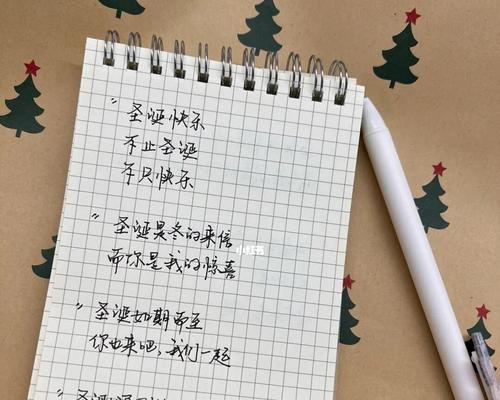 "圣诞快乐
不止圣诞
不只快乐
"圣诞是冬的来信
小红书
而你是我的惊喜
"圣诞如期而至
你也来吧,我们一起
"圣诞